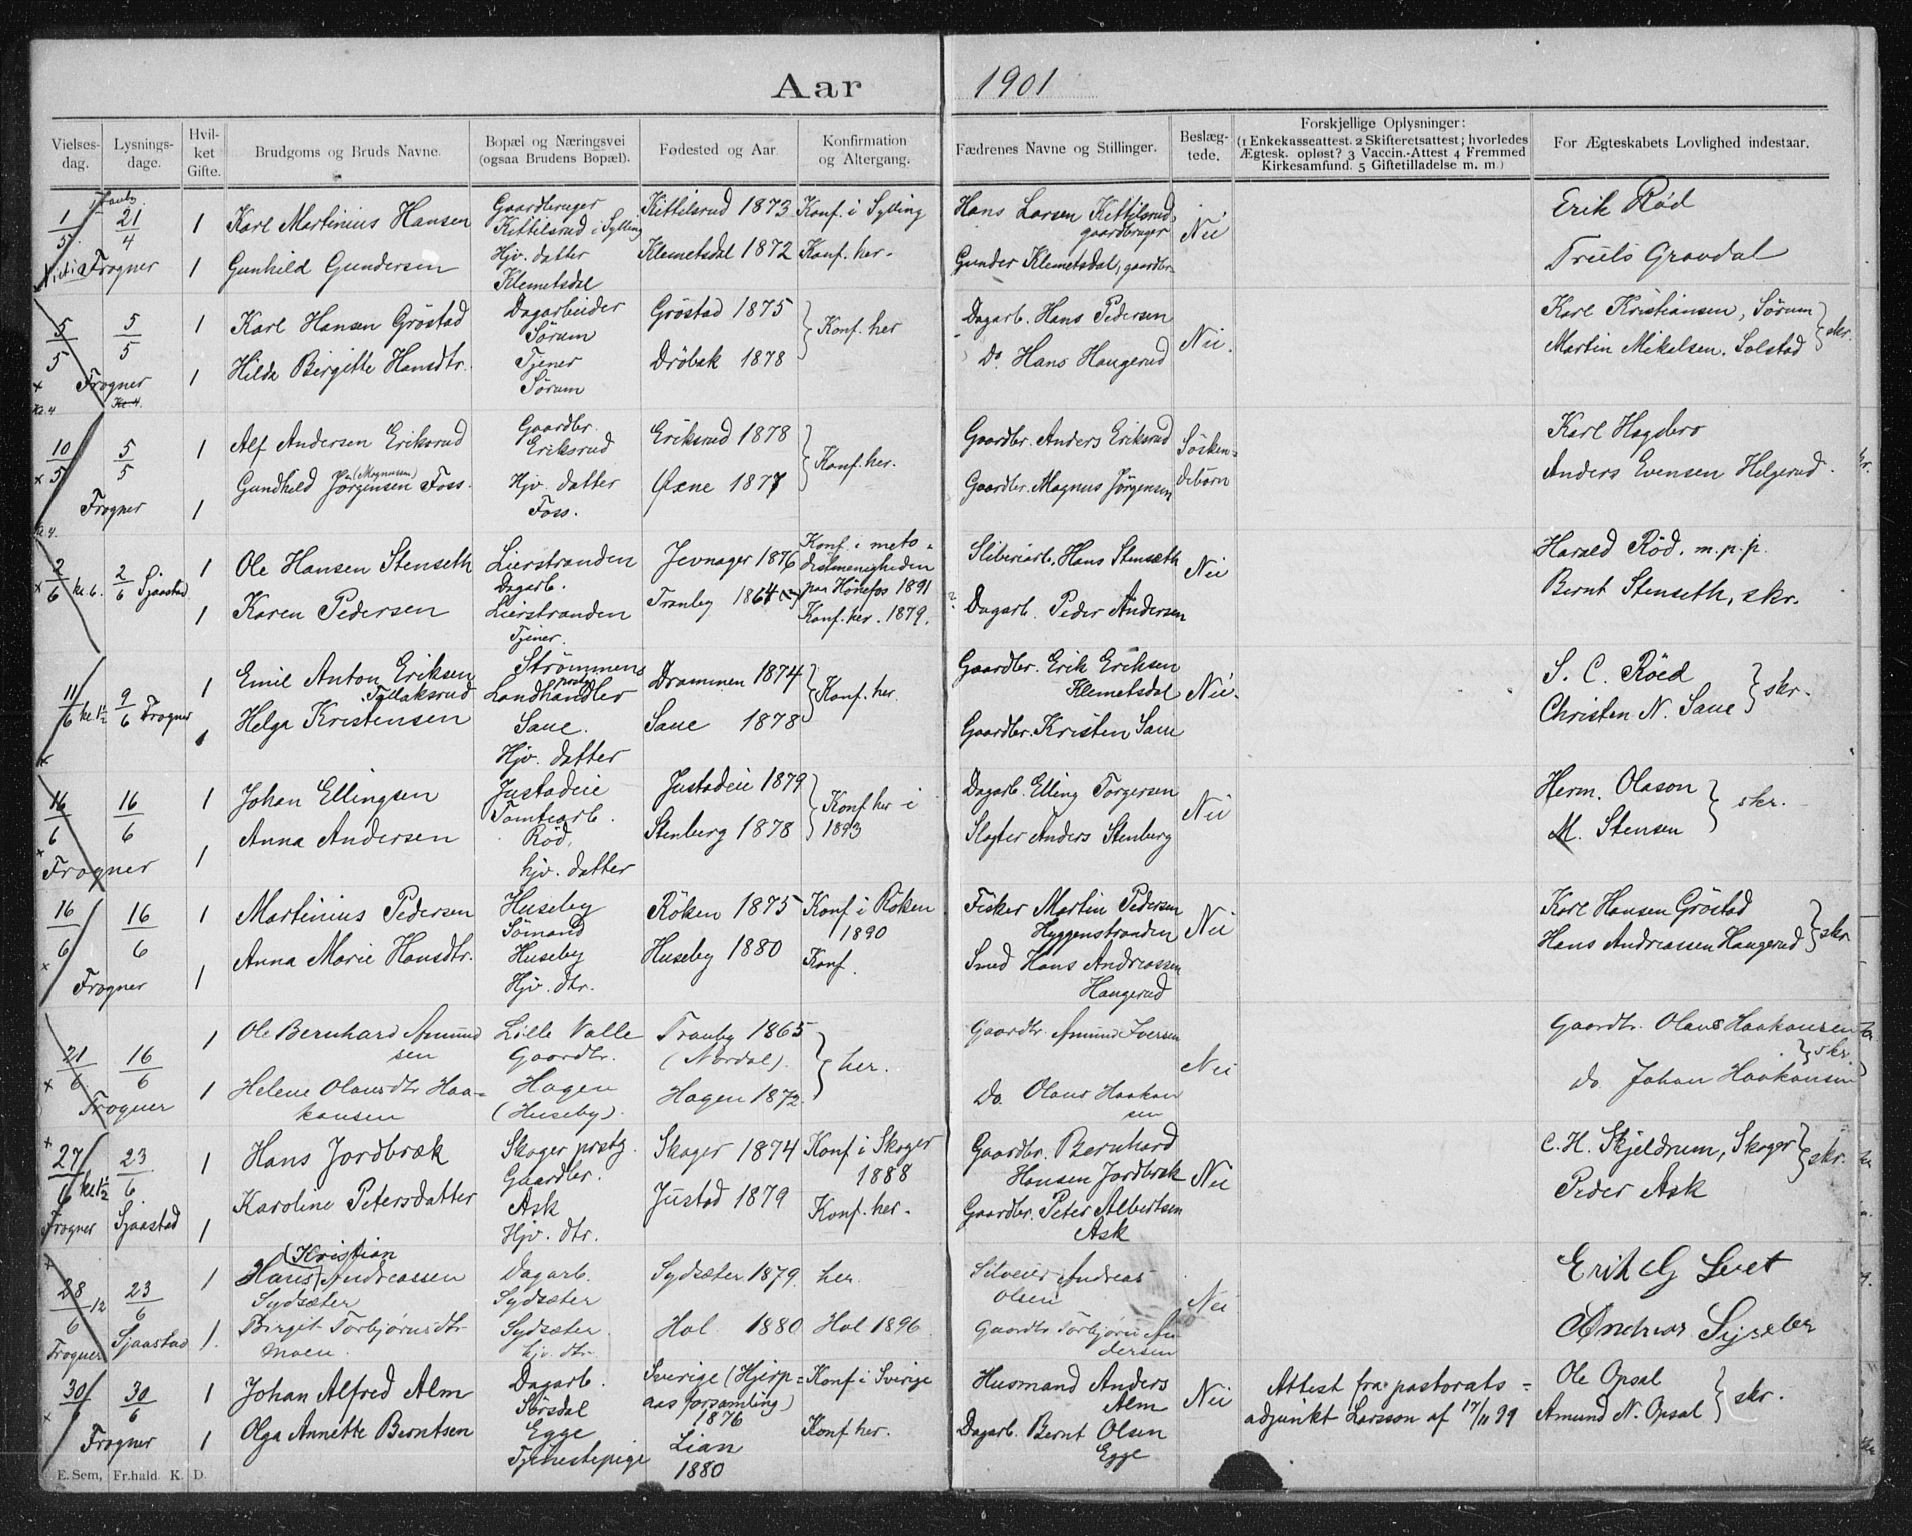 Aar 1901
Vielses-dag. Lysnings-dage. Hvil-ket Gifte. Brudgoms og Bruds Navne. Bopæl og Næringsvei (ogsaa Brudens Bopæl). Fødested og Aar. Konfirmation og Altergang. Fædrenes Navne og Stillinger. Beslæg-tede. Forskjellige Oplysninger: (1 Enkekasseattest. 2 Skifteretsattest; hvorledes Ægtesk. opløst? 3 Vaccin.-Attest 4 Fremmed Kirkesamfund. 5 Giftetilladelse m. m.) For Ægteskabets Lovlighed indestaar.
1/5 21/4 1 Karl Martinius Hansen Gaardbruger Kittilsrud i Sylling Kittilsrud 1873 Konf. i Sylling Hans Larsen Kittilsrud, gaardbruger Nei Erik Rød
Frogner 1 Gunhild Gundersen Hjv. datter Klemetsdal Klemetsdal 1872 Konf. her. Gunder Klemetsdal, gaardbr. Truls Gravdal
5/5 5/5 1 Karl Hansen Gröstad Dagarbeider Sørum Gröstad 1875 Konf. her Dagarb. Hans Pedersen Nei. Karl Kristiansen, Sørum skr.
Frogner 1 Hilda Birgitte Hansdtr. Tjener Sørum Drøbak 1878 Do. Hans Haugerud Martin Mikalsen, Solstad
10/5 5/5 1 Alf Andersen Eriksrud Gaardbr. Eriksrud Eriksrud 1878 Konf. her. Gaardbr. Anders Eriksrud Søsken-debørn Karl Hagsbro
Frogner 1 Gundhild Jørgensen (Magnusen) Foss. Hjv. datter Foss. Øxne 1877 Gaardbr. Magnus Jørgensen Anders Evensen Helgerud.
2/6 kl. 6. 2/6 Sjaastad 1 Ole Hansen Stenseth Lierstranden Dagarb. Jevnager 1876 Konf. i meto-distmenigheden paa Hønefos 1891 Sliberiarb. Hans Stenseth Nei Harald Rød. m.p.p.
1 Karen Pedersen Lierstranden Tjener. Tranby 1864 Konf. her. 1879. ? Dagarb. Peder Andersen Bernt Stenseth, skr.
11/6 9/6 Frogner 1 Emil Anton Eriksen Tyllaksrud Strømmens Landhandler Drammen 1874 Konf. her Gaardbr. Erik Eriksen Klemetsdal Nei. S. C. Röed skr.
1 Helga Kristensen Saue. Hjv. datter Saue 1878 Gaardbr. Kristen Saue Christen N. Saue
16/6 16/6 1 Johan Ellingsen Justadeie Tomtearb. Justadeie 1879 Konf. her i 1893 Dagarb. Elling Torgersen Nei Herm. Olason skr.
Frogner 1 Anna Andersen Rød, hjv. datter Stenberg 1878 Slagter Anders Stenberg M. Stensen
16/6 16/6 1 Martinius Pedersen Huseby Sømand Röken 1875 Konf. i Röken 1890 Fisker Martin Pedersen Hyggenstranden Nei Karl Hansen Gröstad skr
Frogner 1 Anna Marie Hansdtr. Huseby Hjv. dtr. Huseby 1880 Konf. Smed Hans Andreassen Haugerud Hans Andreassen Haugerud
21/6 16/6 1 Ole Bernhard Amund sen Lille Valle Gaardbr. Tranby 1865 (Nordal) her. Gaardbr. Amund Iversen Nei Gaardbr. Olaus Haakansen skr.
Frogner 1 Helene Olausdtr Haa=kansen Hagen (Huseby). Hagen 1872. Do. Olaus Haakan sen do. Johan Haakansen
27/6 kl. 1/2 23/6 1 Hans Jordbræk Skoger prstg. Gaardbr. Skoger 1874 Konf. i Skoger 1888 Gaardbr. Bernhard Hansen Jordbræk Nei C. H. Skjeldrum, Skoger skr.
Frogner Sjaastad 1 Karoline Petersdatter Ask Hjv. dtr. Justad 1879 Konf. her. Gaardbr. Peter Albertsen Ask Peder Ask
28/6 12 23/6 1 Hans (Kristian) Andreassen Sydsæter Dagarb. Sydsæter Sydsæter 1879. her. Andreas Olsen Nei
Frogner Sjaastad 1. Birgit Torbjørnsdtr Moen. Sydsæter hjv. dtr. Hol 1880 Hol 1896. Gaardbr. Torbjørn An dersen Andreas
30/6 30/6 1 Johan Alfred Alm Dagarb. Sørsdal Sverige (Hjerp=aas forsamling) 1876 Konf. i Sverige Husmand Anders Alm Nei Attest fra pastorats=adjunkt Larsson af 17/11 99 Ole Opsal skr.
Frogner 1 Olga Annette Berntsen Egge Tjenestepige Lian 1880 Konf. her. Dagarb. Bernt Olsen Egge Amund N. Opsal
E. Sem, Fr.hald. K. D.